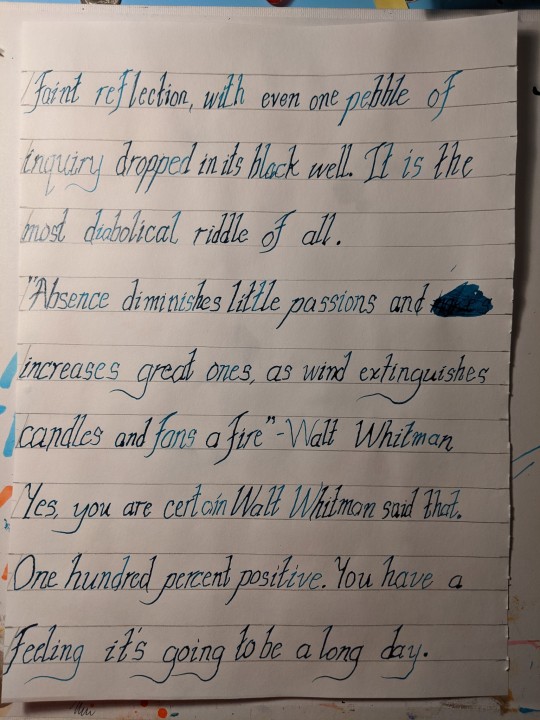 Faint reflection, with even one pebble of
inquiry dropped in its black well. It is the
most diabolical riddle of all.
"Absence diminishes little passions and
increases great ones, as wind extinguishes
candles and fans a fire" -Walt Whitman
Yes, you are certain Walt Whitman said that.
One hundred percent positive. You have a
feeling it's going to be a long day.